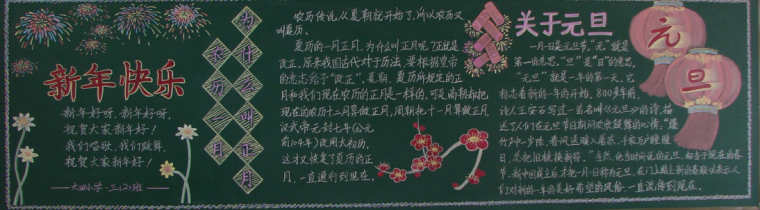 新年快乐
新年好呀，新年好呀，
祝贺大家新年好！
我们唱歌，我们跳舞，
祝贺大家新年好！
为什么叫正月
农历传说从夏朝就开始了，所以农历又
叫夏历。
夏历的一月正月，为什么叫正月呢？这就是
改正，原来我国古代对于历法，要根据皇帝
的意志给予“改正”。夏朝，夏历所规定的正
月和我们现在农历的正月是一样的，可是商朝却把
现在的农历十二月算做正月，周朝把十一月算做正月
汉武帝元封七年（公元
前104年）使用太初历，
这才又恢复了夏历的正
月，一直通行到现在。
关于元旦
一月一日是元旦节，“元”就是
第一的意思，“旦”是“日”的意思。
“元旦”就是一年的第一天，它
标志着新的一年的开始。800多年前，
诗人王安石写过一首名叫《元旦》的诗，描
述了人们在元旦节日期间欢欣鼓舞的心情：“爆
竹声中一岁除，春风送暖入屠苏。千家万户瞳瞳
日，总把旧桃换新符。”当然，他当时所说的元旦，相当于现在的春
节。新中国成立后才把一月一日称为元旦，在门上贴上新的春联以表示人
们对新的一年的美好希望的风俗一直流传到现在。
元旦